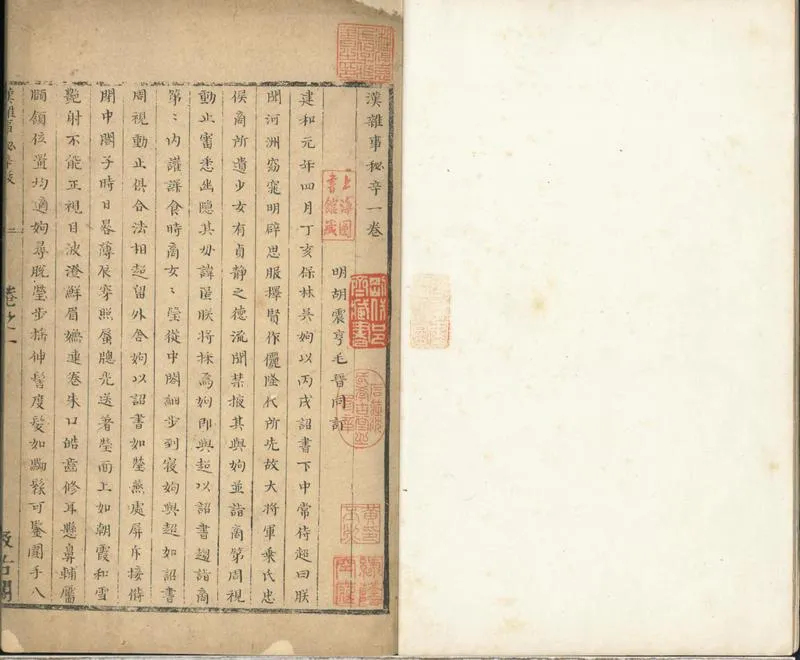 漢雜事秘辛一卷
明胡震亨毛晉同訂
建和元年四月丁亥保林吳姁以丙戌詔書下中常侍超曰朕
聞河洲窈窕明辟思服擇賢作儷隆代所先故大將軍乘氏忠
侯商所遺少女有貞靜之德流聞禁掖其與姁並詣商第周視
動止審悉幽隱其毋諱匿朕將採焉姁即與超以詔書趨詣商
第〻內讙譁食時商女〻瑩從中閤細步到寢姁與超如詔書
周視動止俱合法相超留外舍姁以詔書如瑩燕處屏斥接侍
閉中閤子時日晷薄辰穿照蜃牕光送著瑩面上如朝霞和雪
艷射不能正視目波澄鮮眉嫵連卷朱口皓齒修耳懸鼻輔靨
頤頷位置均適姁尋脫瑩步搖伸髻度髮如黝髹可鑒圍手八
漢雜事秘辛
卷之一
汲古閣
上海圖
書館藏